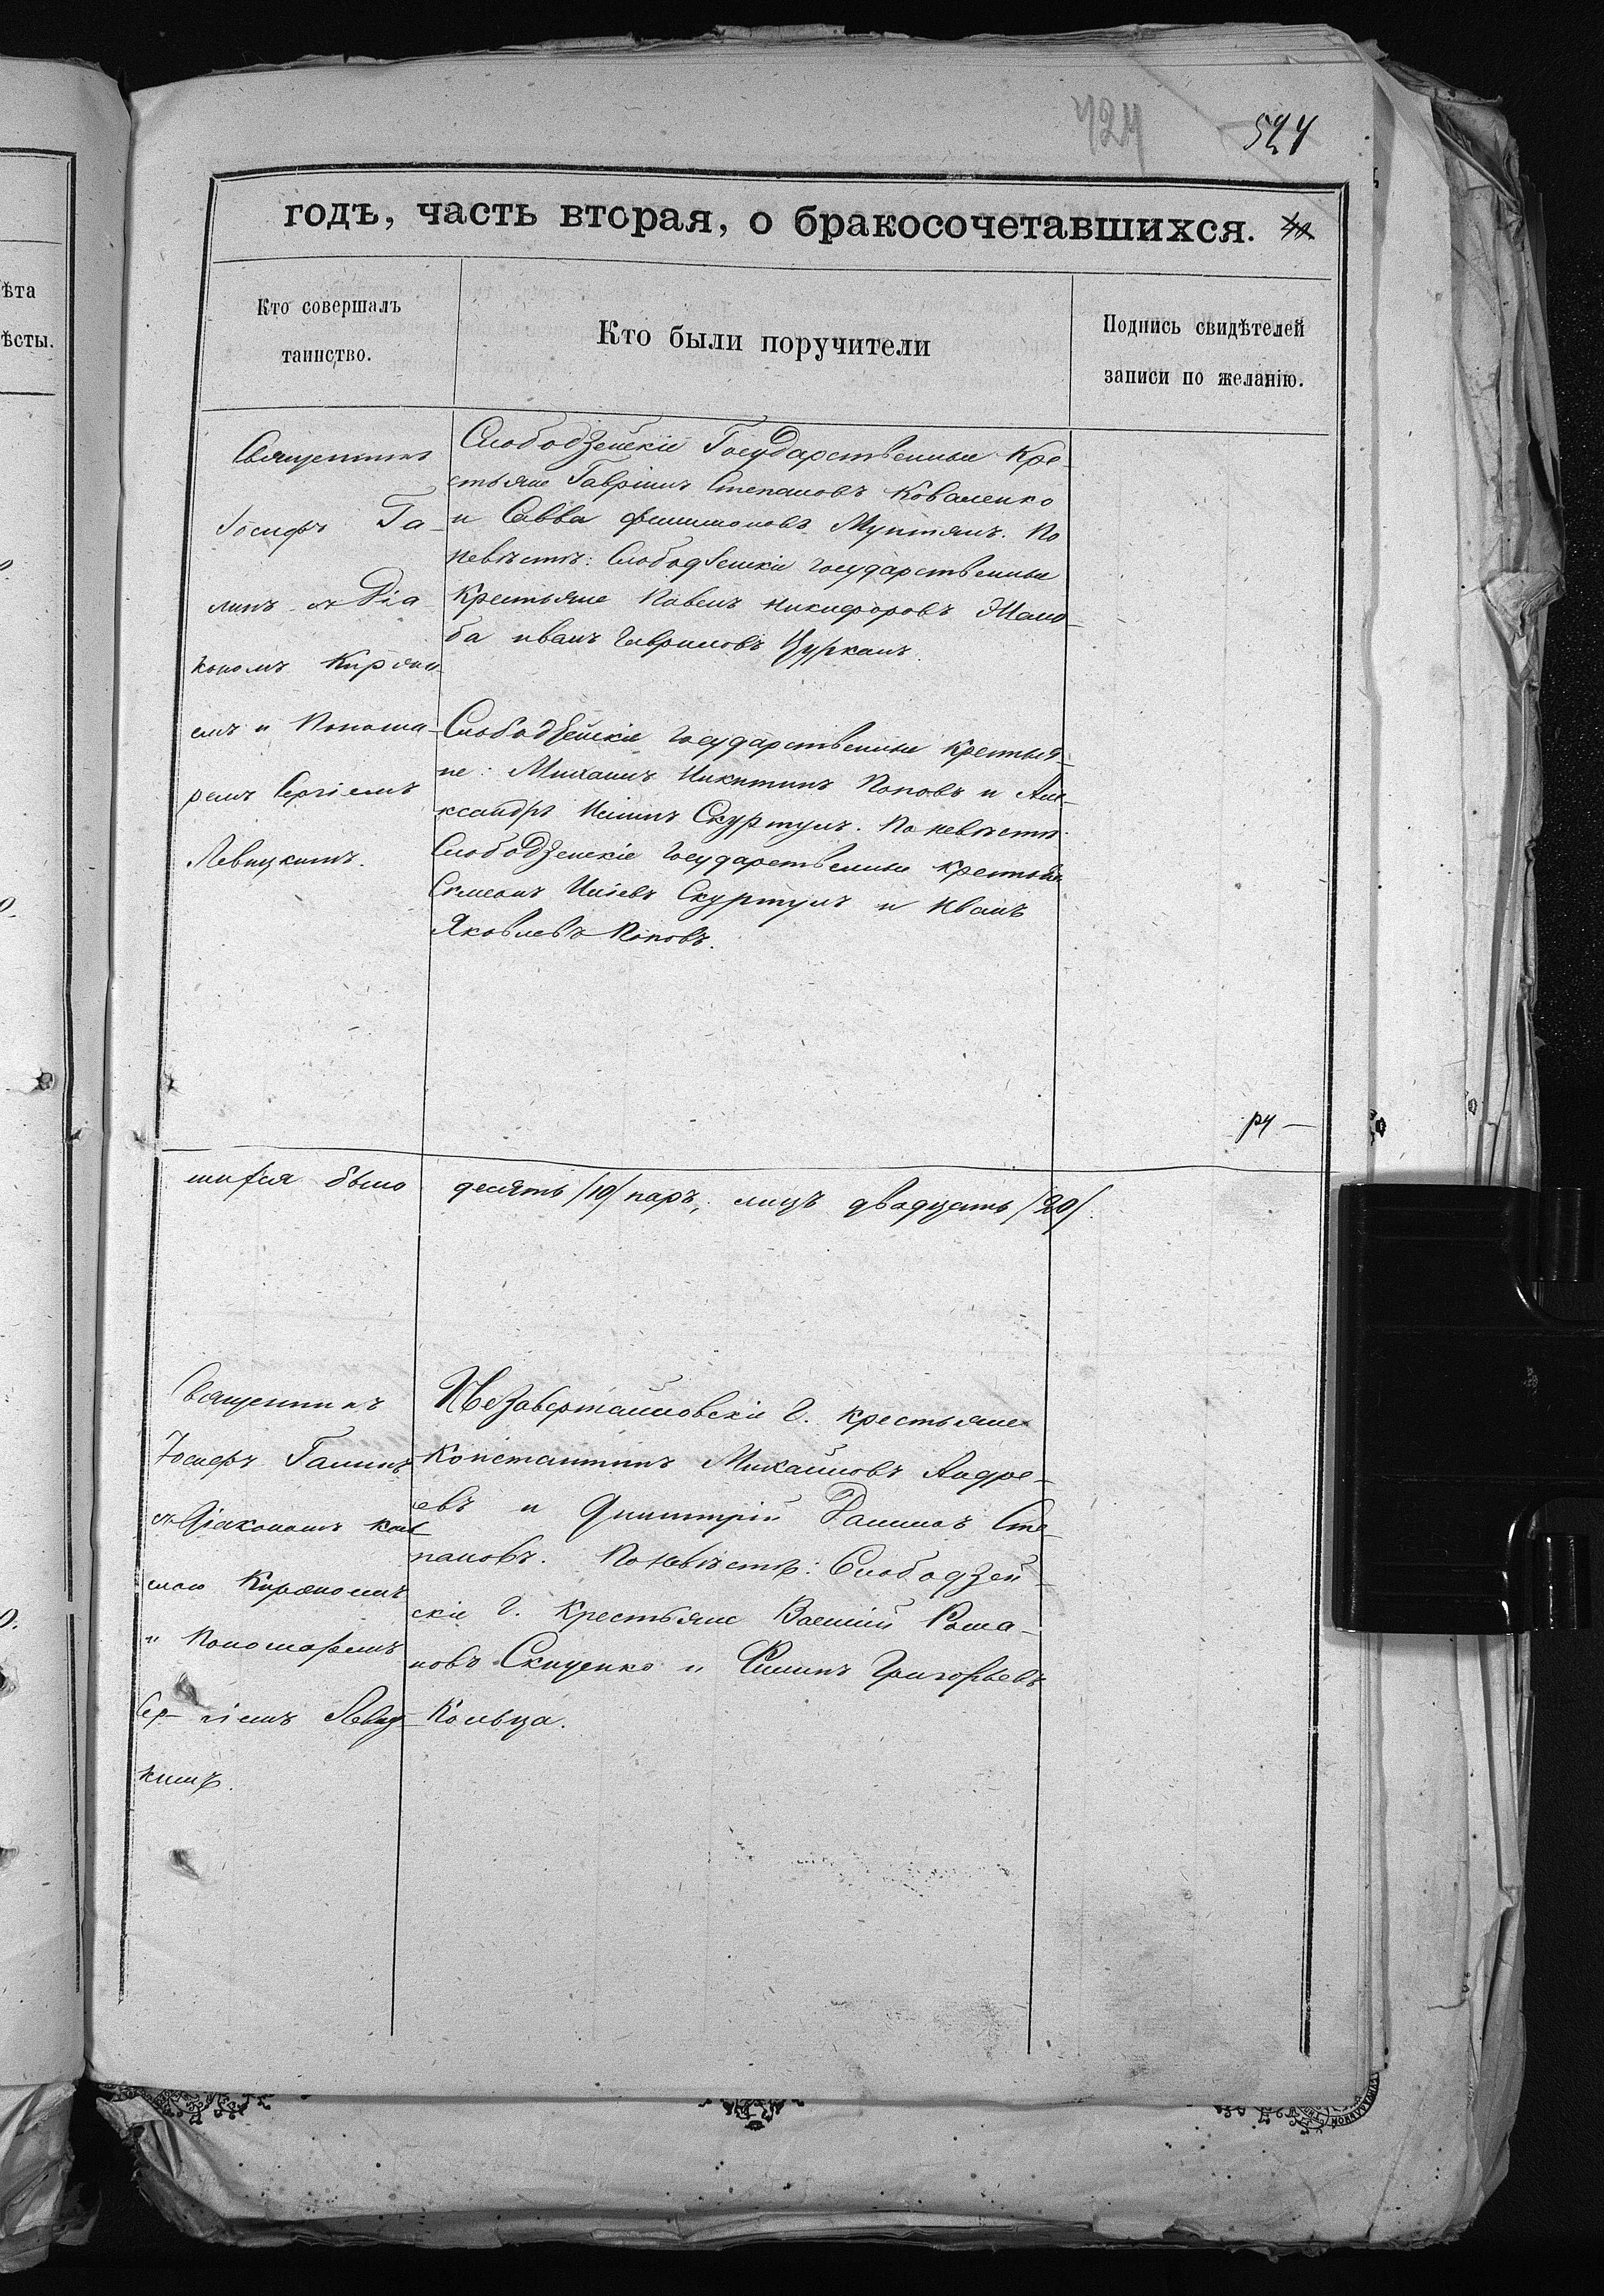 424
524
годъ, часть вторая, о бракосочетавшихся.
ѣта
ѣсты.
Кто совершалъ
таинство.
Кто были поручители
Подпись свидѣтелей
записи по желанію.
Священникъ
Іосифъ Га-
линъ съ Діа
кономъ
емъ и Понома-
ремъ Сергіемъ
Левицкимъ.
Слободзейскіе Государственные Кре-
стьяне Гавріилъ Степановъ Коваленко
и Савва Филимоновъ Мунтянъ. По
невѣстѣ: Слободзейскіе государственные
Крестьяне Павелъ Никифоровъ
ба Иванъ Гавриловъ Цурканъ.
Слободзейскіе государственные крестья-
не: Михаилъ Никитинъ Поповъ и Але-
ксандръ Скуртулъ. По невѣстѣ:
Слободзейскіе государственные крестьяне
Симеонъ Скуртулъ и Иванъ
Яковлевъ Поповъ.
ру —
шихся было десять /10/ паръ, лицъ двадцать /20/.
Священникъ
Іосифъ Галинъ
съ Діакономъ
и Пономаремъ
Сер- гіемъ Левиц-
кимъ.
Незавертайловскіе Г. крестьяне
Константинъ Михайловъ Андре-
евъ и Димитрій Даниловъ Сте-
пановъ. По невѣстѣ: Слободзей-
скіе Г. Крестьяне Василій Рома-
новъ Скиценко и Филипъ Григорьевъ
Кольца.